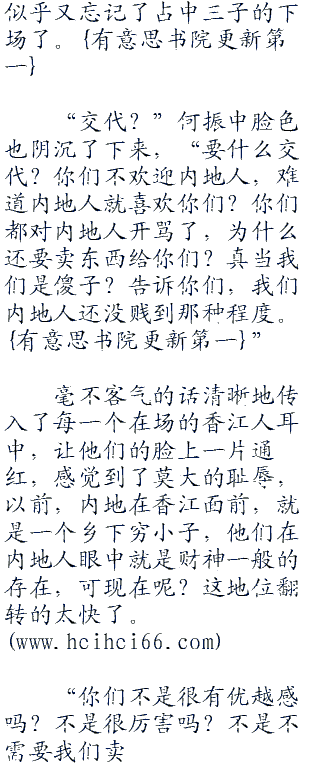 似乎又忘记了占中三子的下
场了。{有意思书院更新第
一}
“交代？”何振中脸色
也阴沉了下来，“要什么交
代？你们不欢迎内地人，难
道内地人就喜欢你们？你们
都对内地人开骂了，为什么
还要卖东西给你们？真当我
们是傻子？告诉你们，我们
内地人还没贱到那种程度。
{有意思书院更新第一}”
毫不客气的话清晰地传
入了每一个在场的香江人耳
中，让他们的脸上一片通
红，感觉到了莫大的耻辱，
以前，内地在香江面前，就
是一个乡下穷小子，他们在
内地人眼中就是财神一般的
存在，可现在呢？这地位翻
转的太快了。
(www.hcihci66.com)
“你们不是很有优越感
吗？不是很厉害吗？不是不
需要我们卖